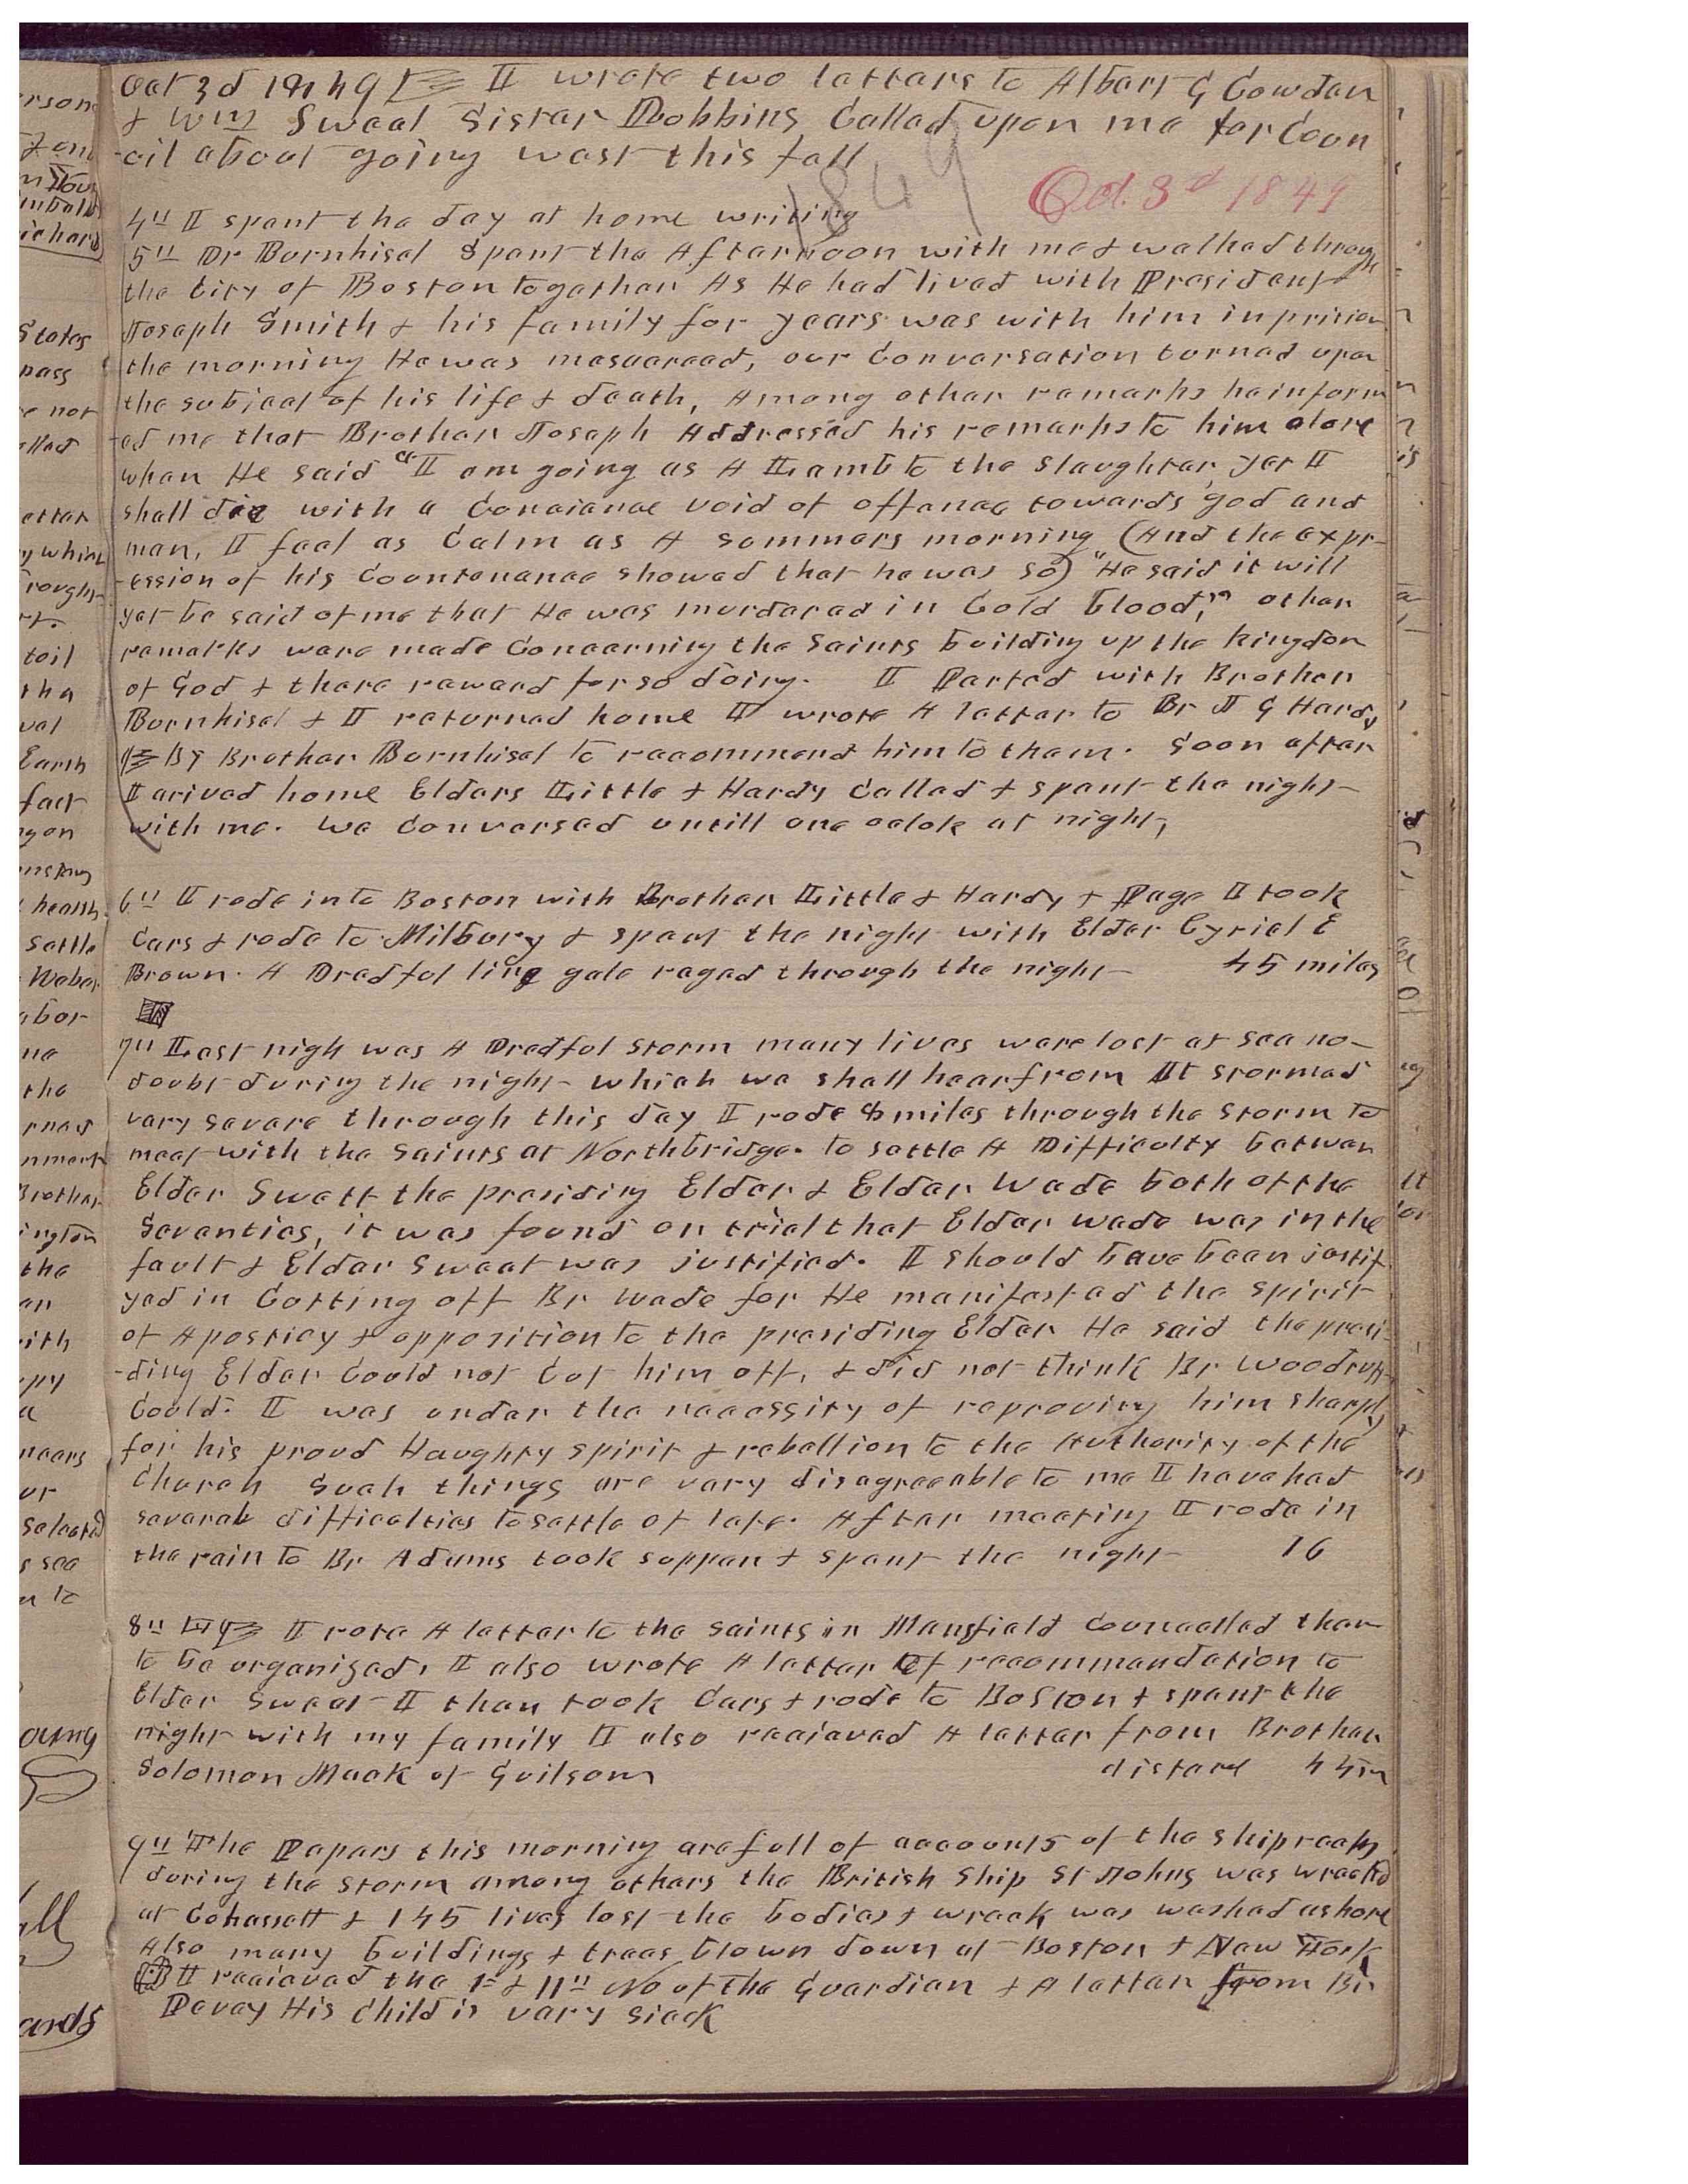 Oct 3d 1849 I wrote two letters to Albert G Cowden
& Wm Sweat Sister Dobbins Called upon me for Coun
-cil about going west this fall
1849
Oct. 3d 1849
4th I spent the day at home writing
5th Dr Burnhisel Spent the Afternoon with me & walked through
the City of Boston togather As He had lived with President
Joseph Smith & his family for years was with him in prision
the morning He was mesacreed, our Conversation turned upon
the subject of his life & death, Among other remarks he inform
-ed me that Brother Joseph Addressed his remarks to him alone
when He said "I am going as A Lamb to the slaughter, yet I
shall die with a Conciance void of offence towards god and
man, I feel as Calm as A summers morning (And the expr-
-ession of his Countenance showed that he was so) "He said it will
yet be said of me that He was murdered in Cold blood," other
remarks were made Concerning the Saints building up the kingdom
of God & there reward for so doing. I Parted with Brother
Burnhisel & I returned home I wrote A letter to Br J G Hardy
By Brother Burnhisel to recommend him to them. Soon after
I arived home Elders Little & Hardy Called & spent the night
with me. We Conversed untill one oclok at night,
6th I rode into Boston with Brother Little & Hardy & Page I took
Cars & rode to Milbury & spent the night with Elder Cyriel E
Brown. A Dredful line gale raged through the night 45 miles
7th Last nigh was A Dredful storm many lives were lost at sea no-
doubt during the night which we shall hear from It stormed
very severe through this day I rode 8 miles through the storm to
meet with the Saints at Northbridge. to settle A Difficulty betwen
Elder Swett the presiding Elder & Elder Wade both of the
Seventies, it was found on trial that Elder wade was in the
fault & Elder Sweat was justified. I should have been justif
yed in Cutting off Br Wade for He manifested the spirit
of Aposticy & opposition to the presiding Elder He said the presi-
-ding Elder Could not Cut him off, & did not think Br Woodruff
Could. I was under the necessity of reproving him sharply
for his proud Haughty spirit & rebellion to the Authority of the
Church Such things are very disagreeable to me I have had
several difficulties to settle of late. After meeting I rode in
the rain to Br Adams took supper & spent the night 16
8th I rote A letter to the Saints in Mansfield Councelled them
to be organized, I also wrote A letter of recommendation to
Elder Sweat I then took Cars & rode to Boston & spent the
night with my family I also recieved A letter from Brother
Solomon Mack of Guilsom distance 44 m
9th The Papers this morning are full of accounts of the shipwrecks
during the storm among others the British Ship St Johns was wrecked
at Cohassett & 145 lives lost the bodies & wreck was washed ashore
Also many buildings & trees blown down at Boston & New York
I recieved the 1st & 11th No of the Guardian & A letter from Br
Pevey His Child is very sick